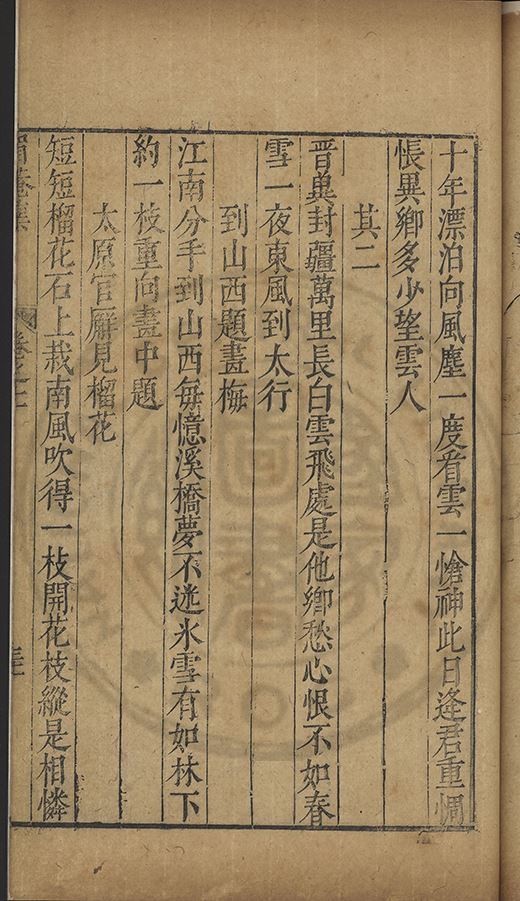 十年漂泊向風塵一度看雲一愴神此日逢君重惆
悵異鄉多少望雲人
其二
晉兾封疆萬里長白雲飛處是他鄉愁心恨不如春
雪一夜東風到太行
到山西題畫梅
江南分手到山西每憶溪橋夢不迷氷雪有如林下
約一枝重向畫中題
太原官廨見榴花
短短榴花石上栽南風吹得一枝開花枝縱是相憐
卷之二